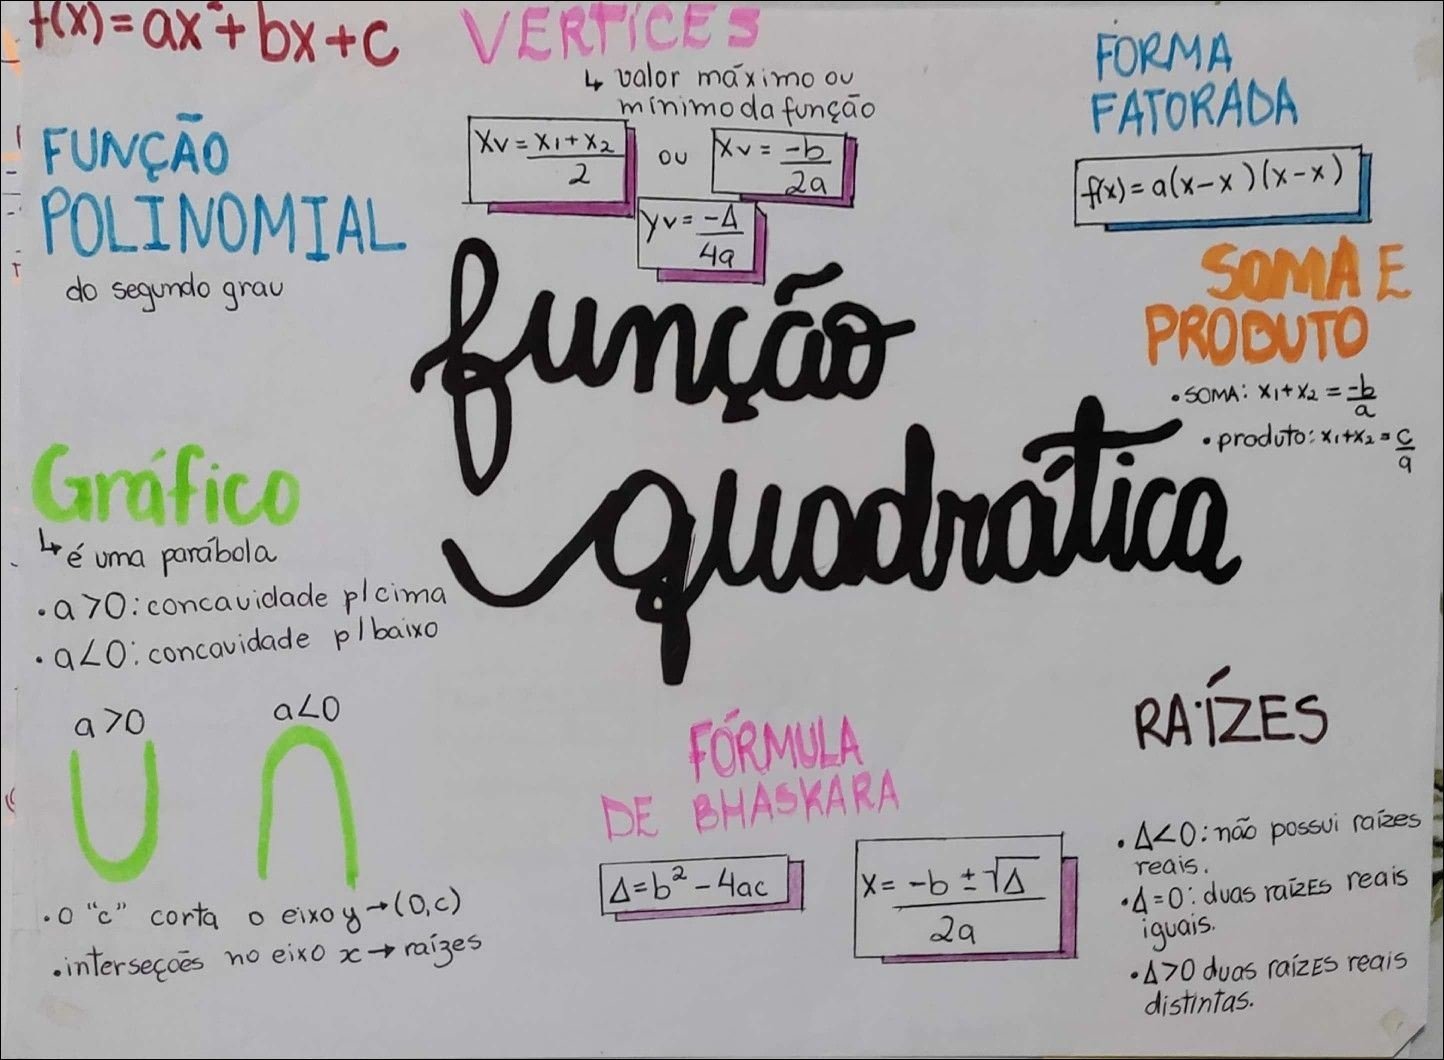 f(x) = ax² + bx + c
FUNÇÃO
POLINOMIAL
do segundo grau
VERTÍCES
↳ valor máximo ou
mínimo da função
Xv = x₁ + x₂ / 2 ou Xv = -b / 2a
yv = -Δ / 4a
FORMA
FATORADA
f(x) = a(x-x)(x-x)
SOMA E
PRODUTO
• SOMA: x₁ + x₂ = -b / a
• produto: x₁+x₂ = c / a
função
quadrática
Gráfico
↳ é uma parábola
• a>0: concavidade p/cima
• a<0: concavidade p/baixo
a>0 a<0
• O "c" corta o eixo y → (0,c)
• interseções no eixo x → raízes
FÓRMULA
DE BHASKARA
Δ = b² - 4ac
X = -b ± √Δ / 2a
RAÍZES
• Δ<0: não possui raízes
reais.
• Δ=0: duas raízes reais
iguais.
• Δ>0 duas raízes reais
distintas.